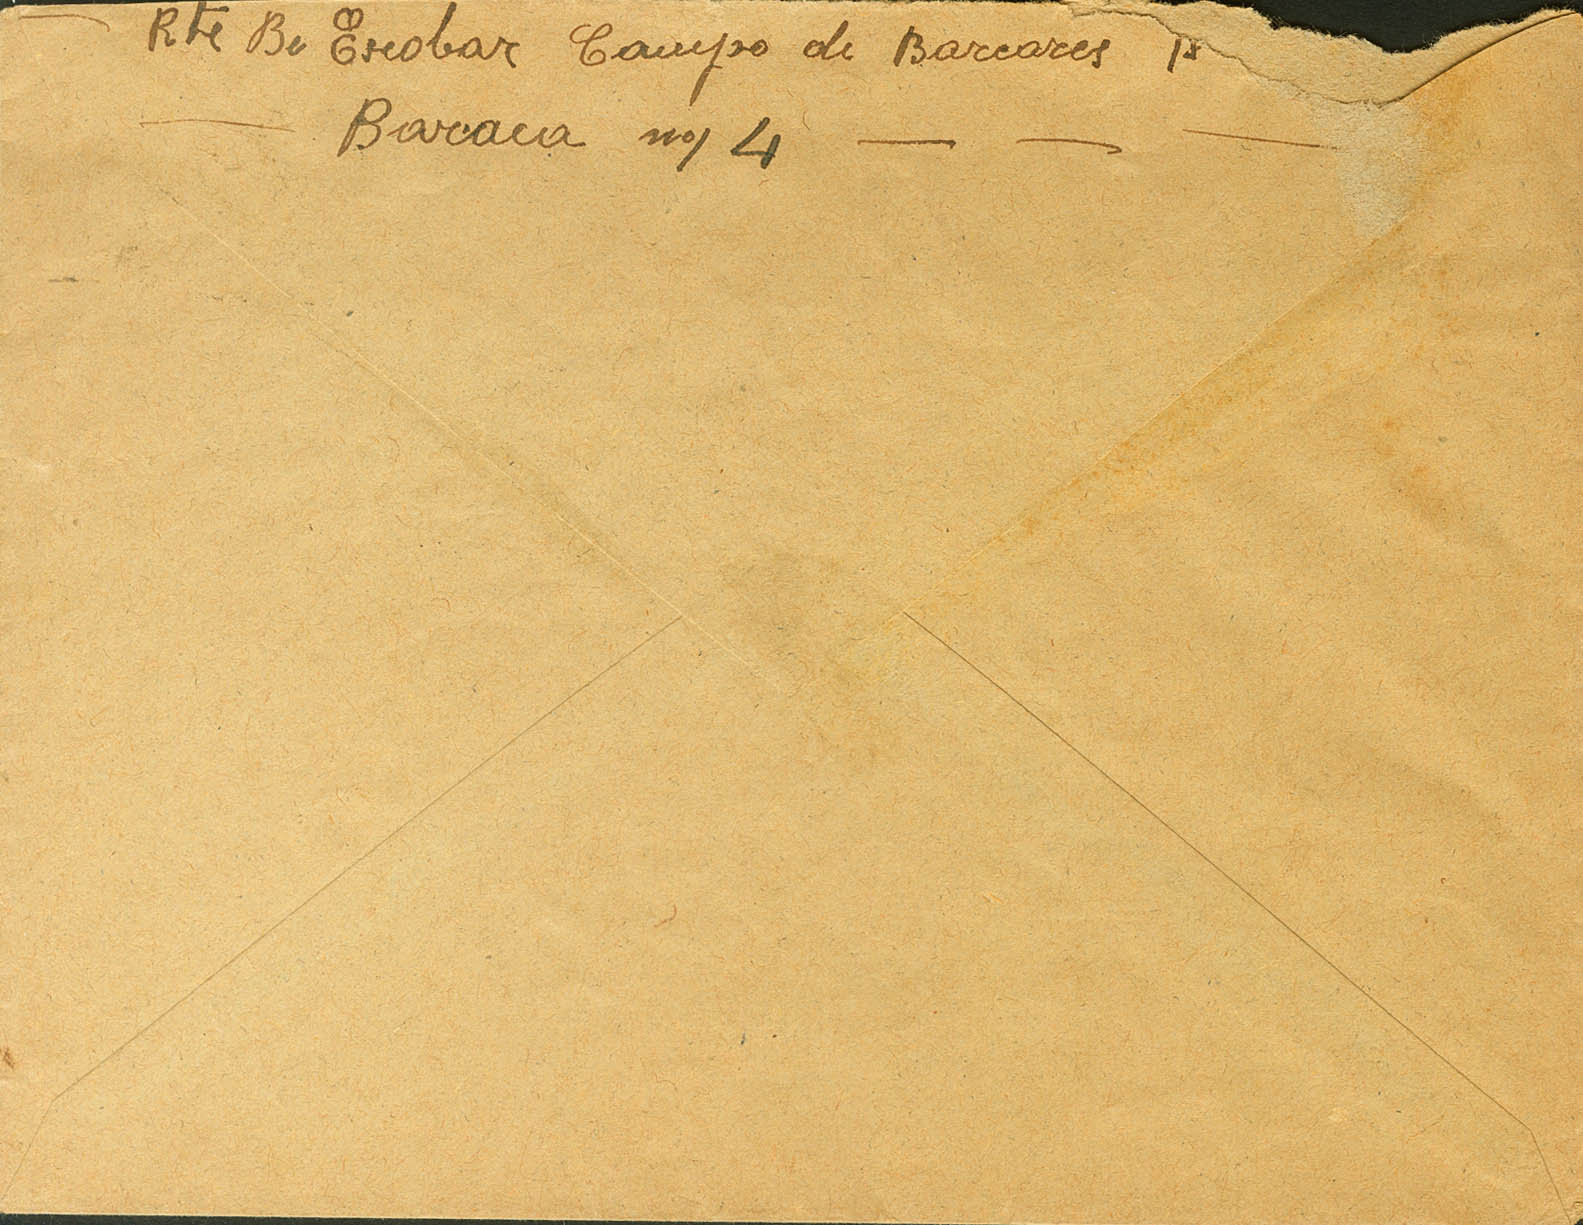 Rte Be Escobar Campo de Barcares
Baraca nº 4